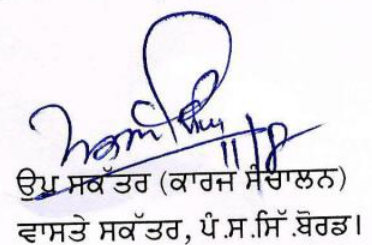 11/8
ਉਪ ਸਕੱਤਰ (ਕਾਰਜ ਸੰਚਾਲਨ)
ਵਾਸਤੇ ਸਕੱਤਰ, ਪੰ.ਸ.ਸਿੱ.ਬੋਰਡ।